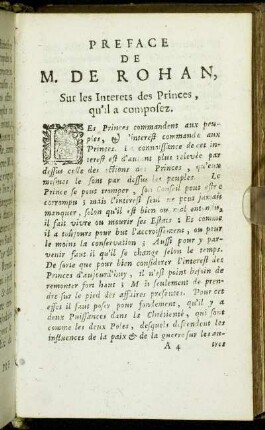 PREFACE
DE
M. DE ROHAN,
Sur les Interets des Princes,
qu'il a composez.
LEs Princes commandent aux peu-
ples, & l'interest commande aux
Princes. La connoissance de cet in-
terest est d'autant plus relevée par
dessus celle des actions des Princes, qu'eux
mesmes le sont par dessus les peuples. Le
Prince se peut tromper, son Conseil peut estre
corrompu; mais l'interest seul ne peut jamais
manquer, selon qu'il est bien ou mal entendu,
il fait vivre ou mourir les Estats: Et comme
il a toûjours pour but l'accroissement, ou pour
le moins la conservation; Aussi pour y par-
venir faut il qu'il se change selon le temps.
De sorte que pour bien considerer l'interest des
Princes d'aujourd'huy, il n'est point besoin de
remonter fort haut; Mais seulement de pren-
dre sur le pied des affaires presentes. Pour cet
effet il faut poser pour fondement, qu'il y a
deux Puissances dans la Chrétienté, qui sont
comme les deux Poles, desquels descendent les
influences de la paix & de la guerre sur les au-
A 4 tres